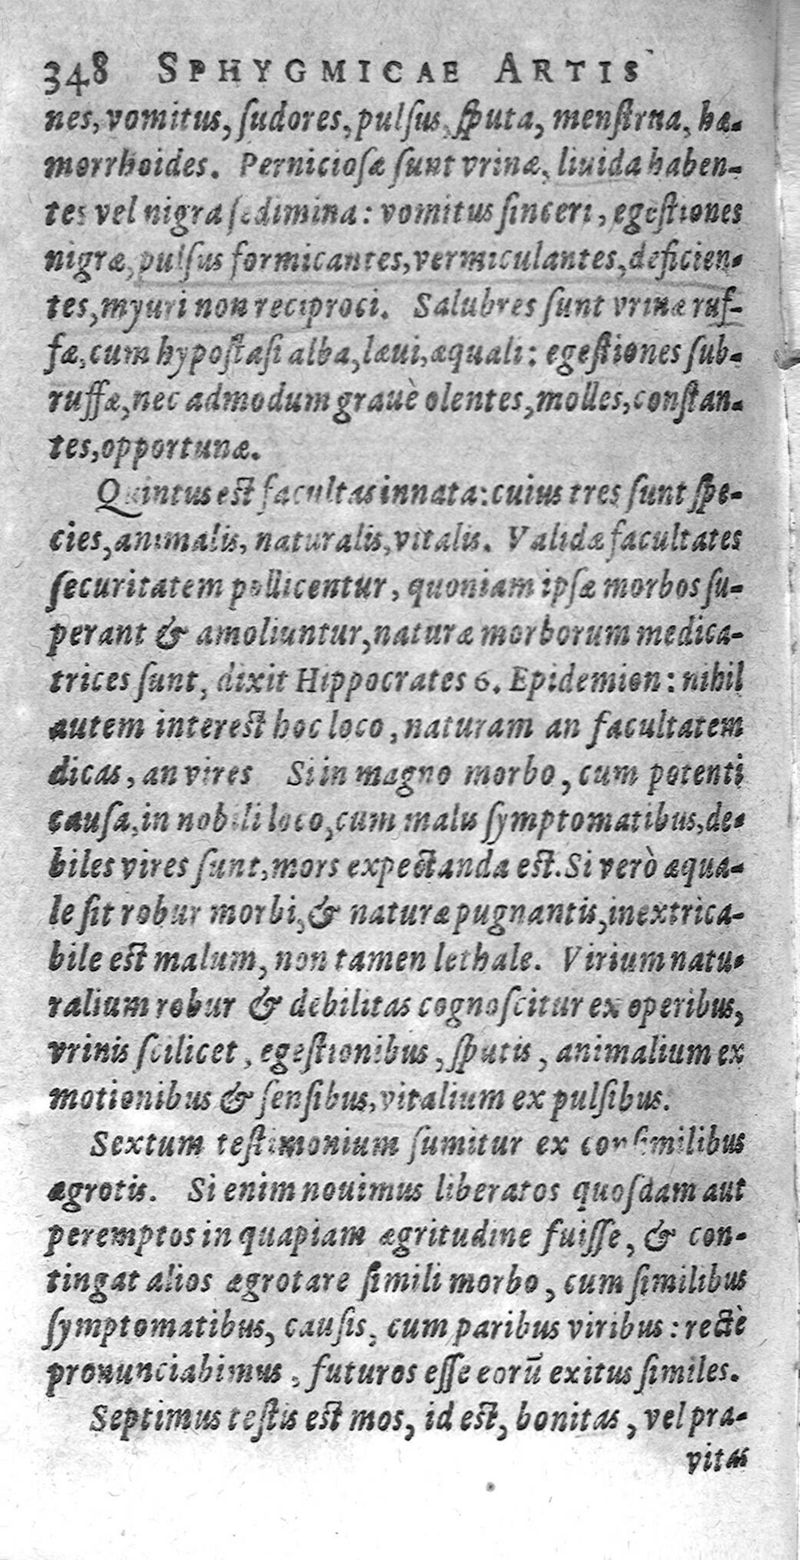 348 SPHYGMICAE ARTIS
nes, vomitus, ſudores, pulſus, ſputa, menſtrua, hæ-
morrhoides. Pernicioſæ ſunt vrinæ, liuida haben-
tes vel nigra ſedimina: vomitus ſinceri, egeſtiones
nigræ, pulſus formicantes, vermiculantes, deficien-
tes, myuri non reciproci. Salubres ſunt vrinæ ruf-
fæ, cum hypoſtaſi alba, læui, æquali: egeſtiones ſub-
ruffæ, nec admodum grauè olentes, molles, conſtan-
tes, opportunæ.
Quintus eſt facultas innata: cuius tres ſunt ſpe-
cies, animalis, naturalis, vitalis. Validæ facultates
ſecuritatem pollicentur, quoniam ipſæ morbos ſu-
perant & amoliuntur, naturæ morborum medica-
trices ſunt, dixit Hippocrates 6. Epidemion: nihil
autem intereſt hoc loco, naturam an facultatem
dicas, an vires Si in magno morbo, cum potenti
cauſa, in nobili loco, cum malis ſymptomatibus, de-
biles vires ſunt, mors expectanda eſt. Si verò æqua-
le ſit robur morbi, & naturæ pugnantis, inextrica-
bile eſt malum, non tamen lethale. Virium natu-
ralium robur & debilitas cognoſcitur ex operibus,
vrinis ſcilicet, egeſtionibus, ſputis, animalium ex
motionibus & ſenſibus, vitalium ex pulſibus.
Sextum teſtimonium ſumitur ex conſimilibus
ægrotis. Si enim nouimus liberatos quoſdam aut
peremptos in quapiam ægritudine fuiſſe, & con-
tingat alios ægrotare ſimili morbo, cum ſimilibus
ſymptomatibus, cauſis, cum paribus viribus: rectè
pronunciabimus, futuros eſſe eorū exitus ſimiles.
Septimus teſtis eſt mos, id eſt, bonitas, vel pra-
vitas